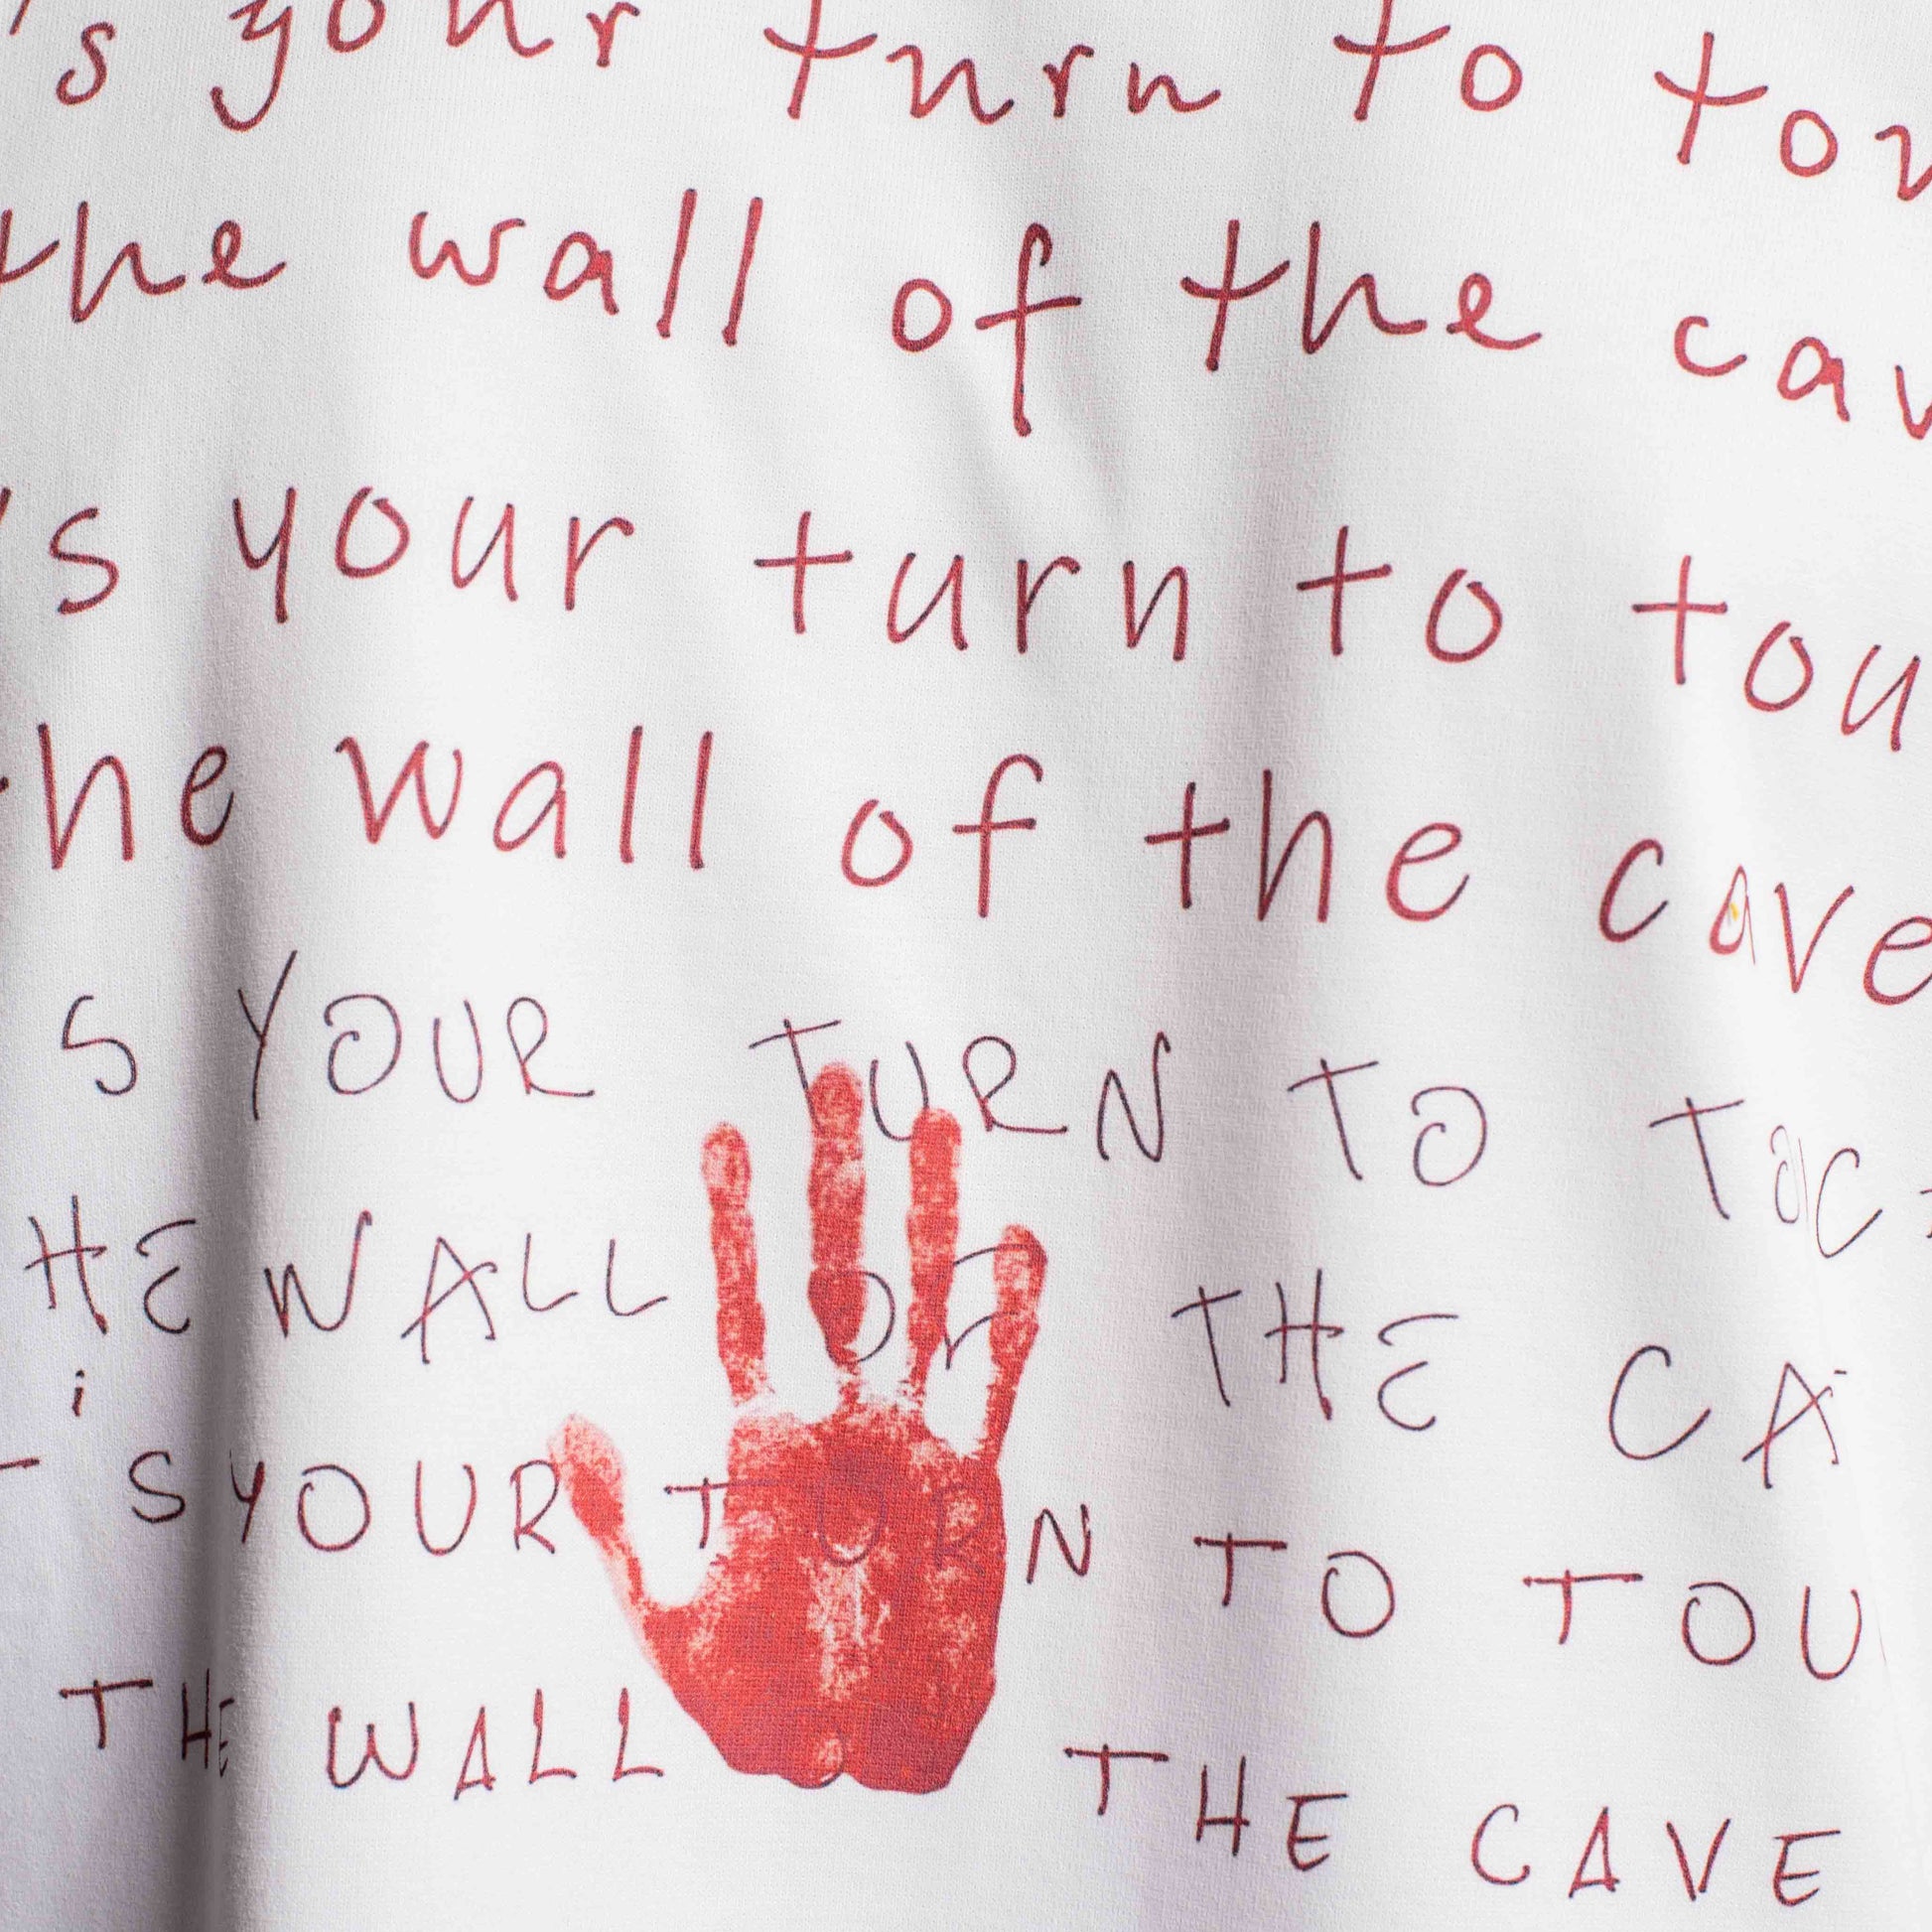 's your turn to tou
the wall of the cav
's your turn to tou
the wall of the cave
S YOUR TURN TO TOUC
HE WALL OF THE CA
i
T S YOUR TURN TO TOU
THE WALL THE CAVE